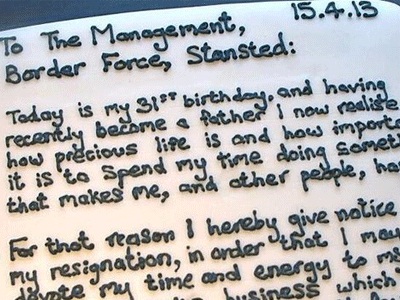 15.4.13
To The Management,
Border Force, Stansted:
Today is my 31st birthday, and having
recently become a father I now realise
how precious life is and how
it is to spend my time doing
that makes me, and other people,
For that reason I hereby give notice
my resignation, in order that I may
devote my time and energy to my
business which